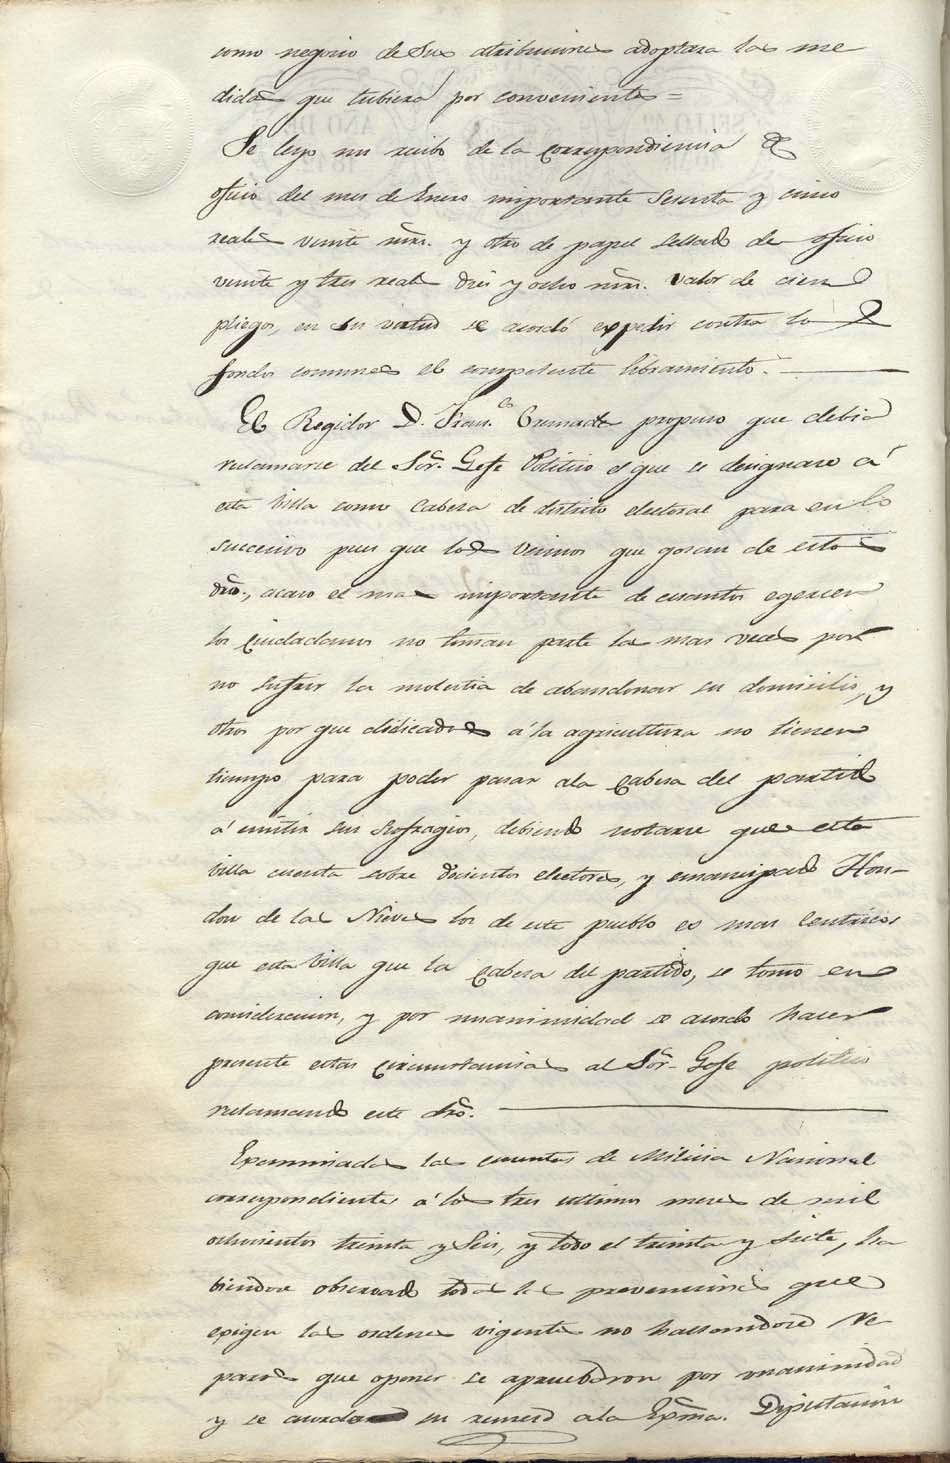 como negocio de sus atribuciones adoptara las me
didas que tubiera por convenientes =
Se leyo un recibo de la correspondencia de
oficio del mes de Enero importante sesenta y cinco
reales veinte mrs. y otro de papel sellado de oficio
veinte y tres reales diez y ocho mrs. valor de cien
pliegos, en su virtud se acordó expedir contra los
fondos comunes el competente libramiento.
El Regidor D. Franco. Cremades propuso que debia
reclamarse del Sor. Gefe Politico el que se designase á
esta Villa como Cabesa de distrito electoral para en lo
sucesivo pues que los vecinos que gosan de este
dro., acaso el mas important de cuantos egercen
los ciudadanos no toman parte las mas veces por
no sufrir la molestia de abandonar su domicilio, y
otros por que didicados á la agricultura no tienen
tiempo para poder pasar ala Cabesa del partido
á emitir sus sufragios, debiendo notarse que esta
Villa cuenta sobre docientos electores, y emancipado Hon-
don de las Nieves los de este pueblo es mas centrico
que esta Villa que la cabesa del partido, se tomó en
consideracion, y por unanimidad se acordó hacer
presente estas circunstancias al Sor. Gefe politico
reclamando este dro.
Examinadas las cuentas de Milicia Nacional
correspondientes á los tres ultimos meses de mil
ochocientos treinta y seis, y todo el treinta y siete, ha
biendose observado todas las prevenciones que
exigen las ordenes vigentes no hallandose re
paros que oponer se aprueb.ron por unanimidad
y se acordó su remesa ala Exma. Diputacion